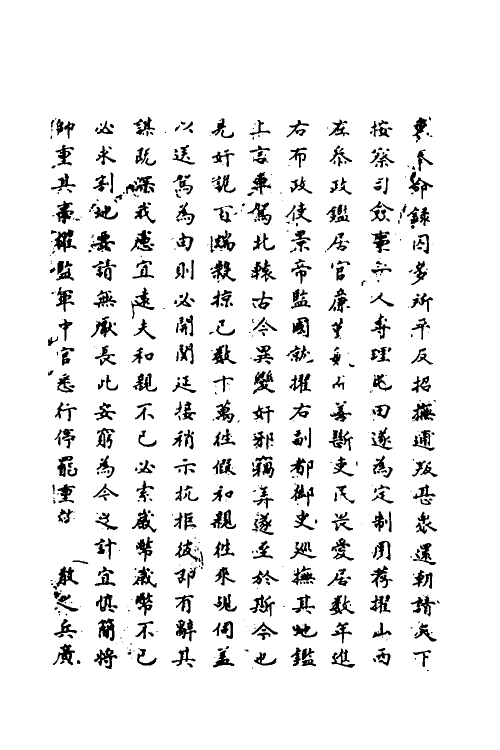 東奉命錄囚多所平反招撫逋叛甚衆還朝請天下
按察司僉事一人專理屯田遂為定制用荐擢山西
左叅政鑑居官廉善斷吏民畏愛居數年進
右布政使景帝監國就擢右副都御史廵撫其地鑑
上言車駕北轅古今異變奸邪竊弄遂至於斯今也
先奸詭百端殺掠已數十萬徃假和親徃來覘伺盖
以送駕為由則必開關廷接稍示抗拒彼即有辭其
謀既深我慮宜遠夫和親不已必索歲幣歲幣不已
必求割地要請無厭長此安窮為今之計宜慎簡將
帥重其事權監軍中官悉行停罷重散之兵廣